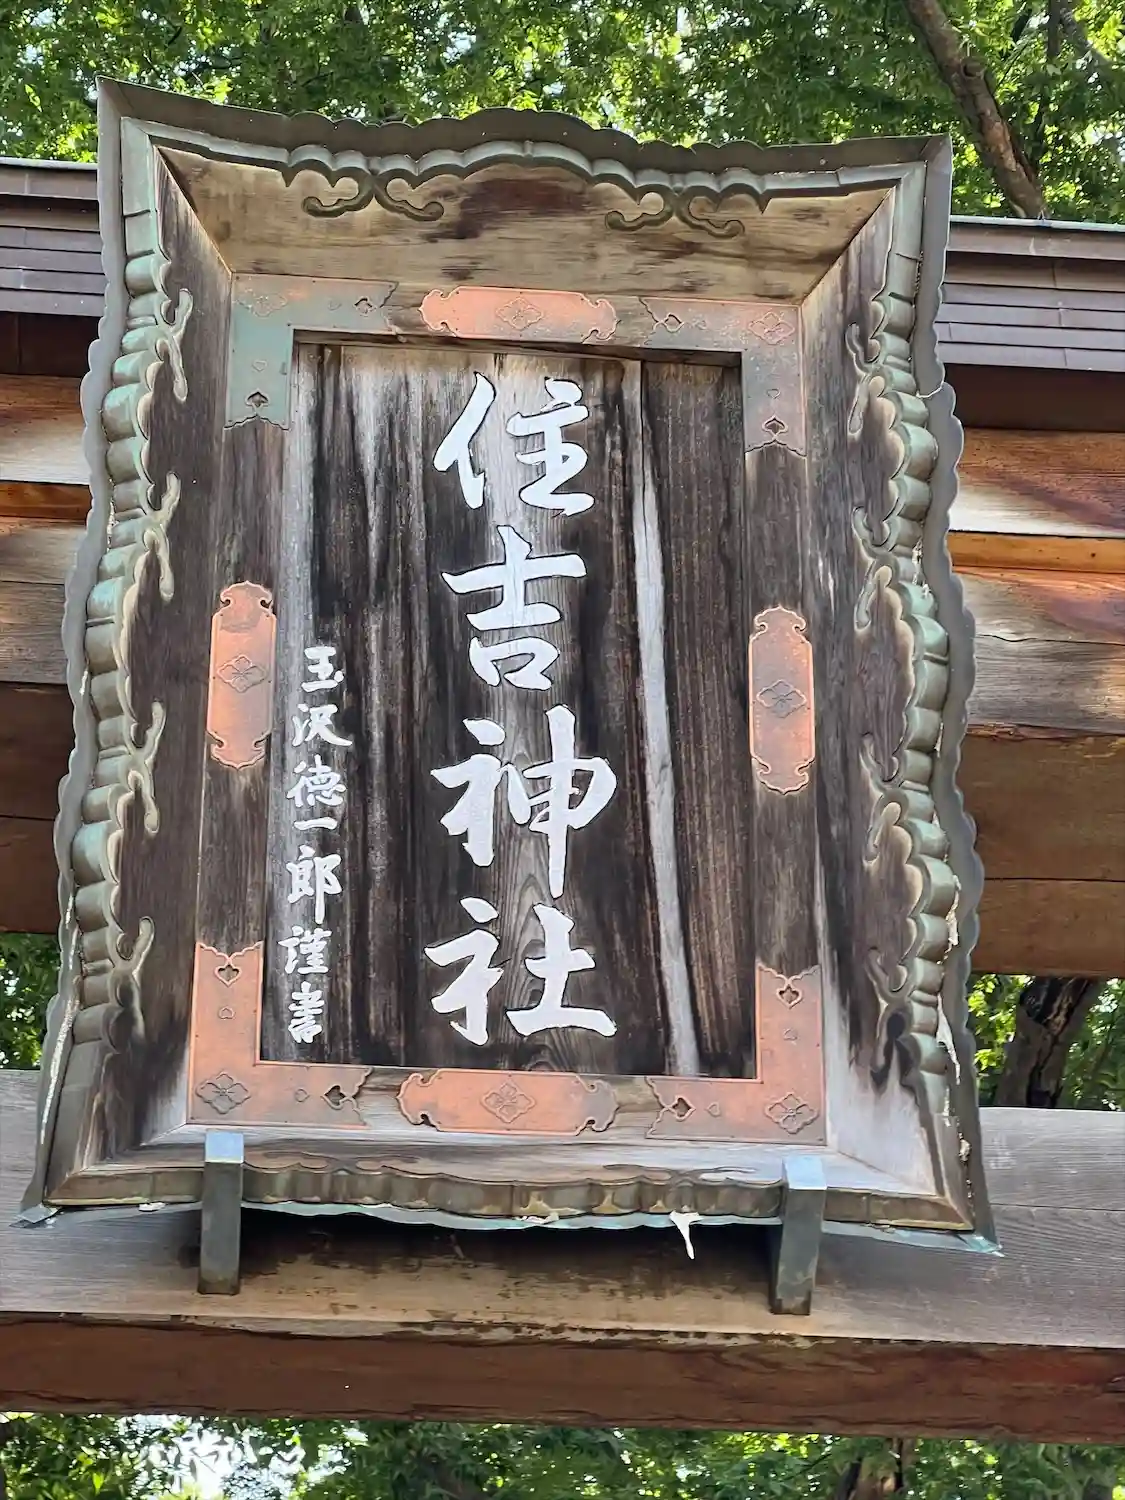 住吉神社
玉沢徳一郎謹書